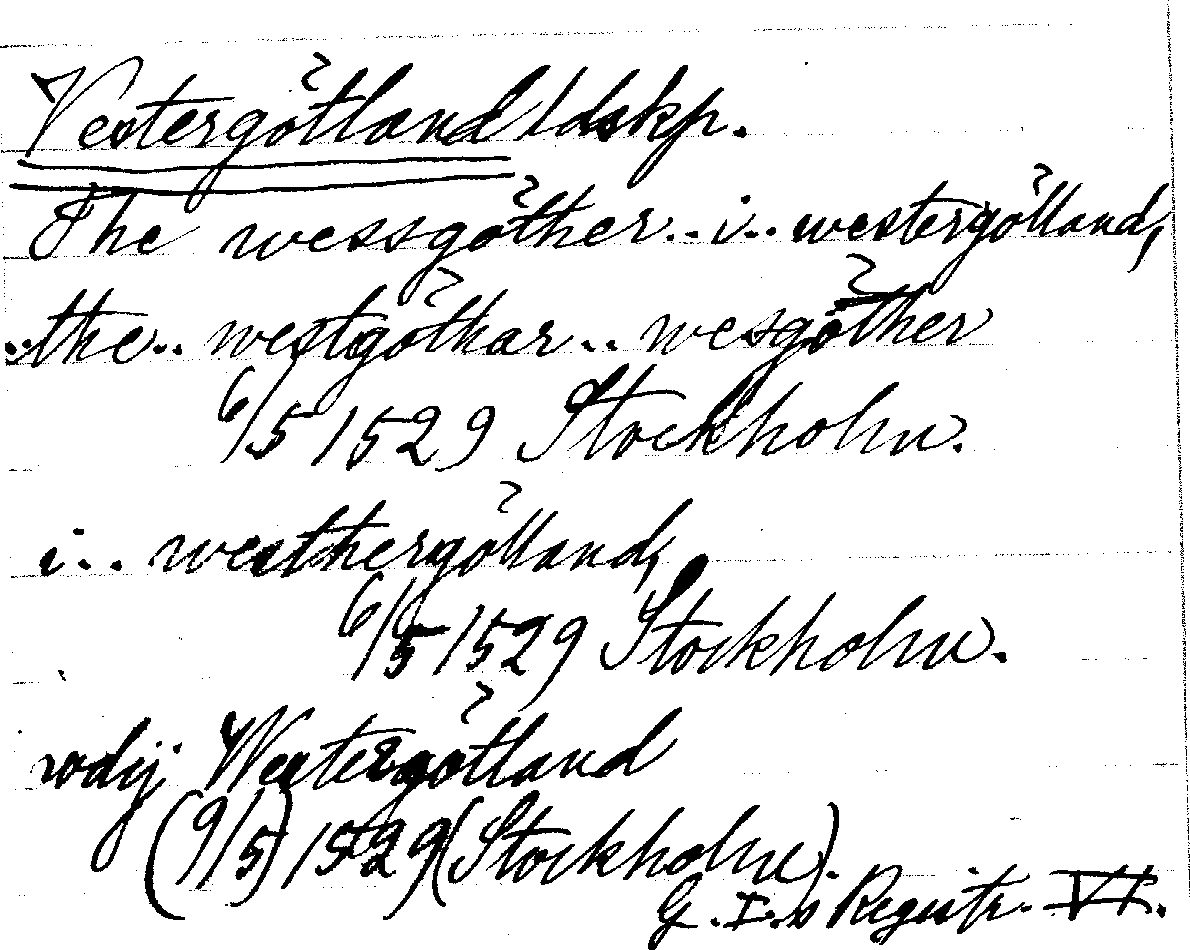 Vestergötland ldskp.
The wessgöther... i.. westergötland,
..the.. westgöthar.. wesgöther
6/5 1529 Stockholm.
i.. westhergötland,
6/5 1529 Stockholm.
wdij Westergötland
(9/5) 1529 (Stockholm).
G. I.s Registr. VI.